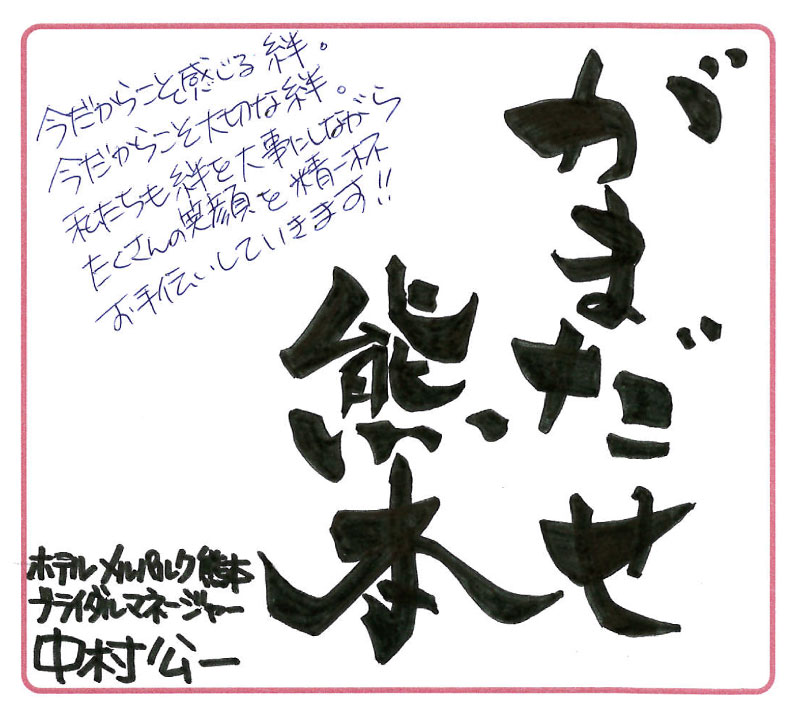 がまだせ
熊本
今だからこそ感じる絆。
今だからこそ大切な絆。
私たちも絆を大事にしながら
たくさんの笑顔を精一杯
お手伝いしていきます!!
ホテルメルパルク熊本
ブライダルマネージャー
中村公一